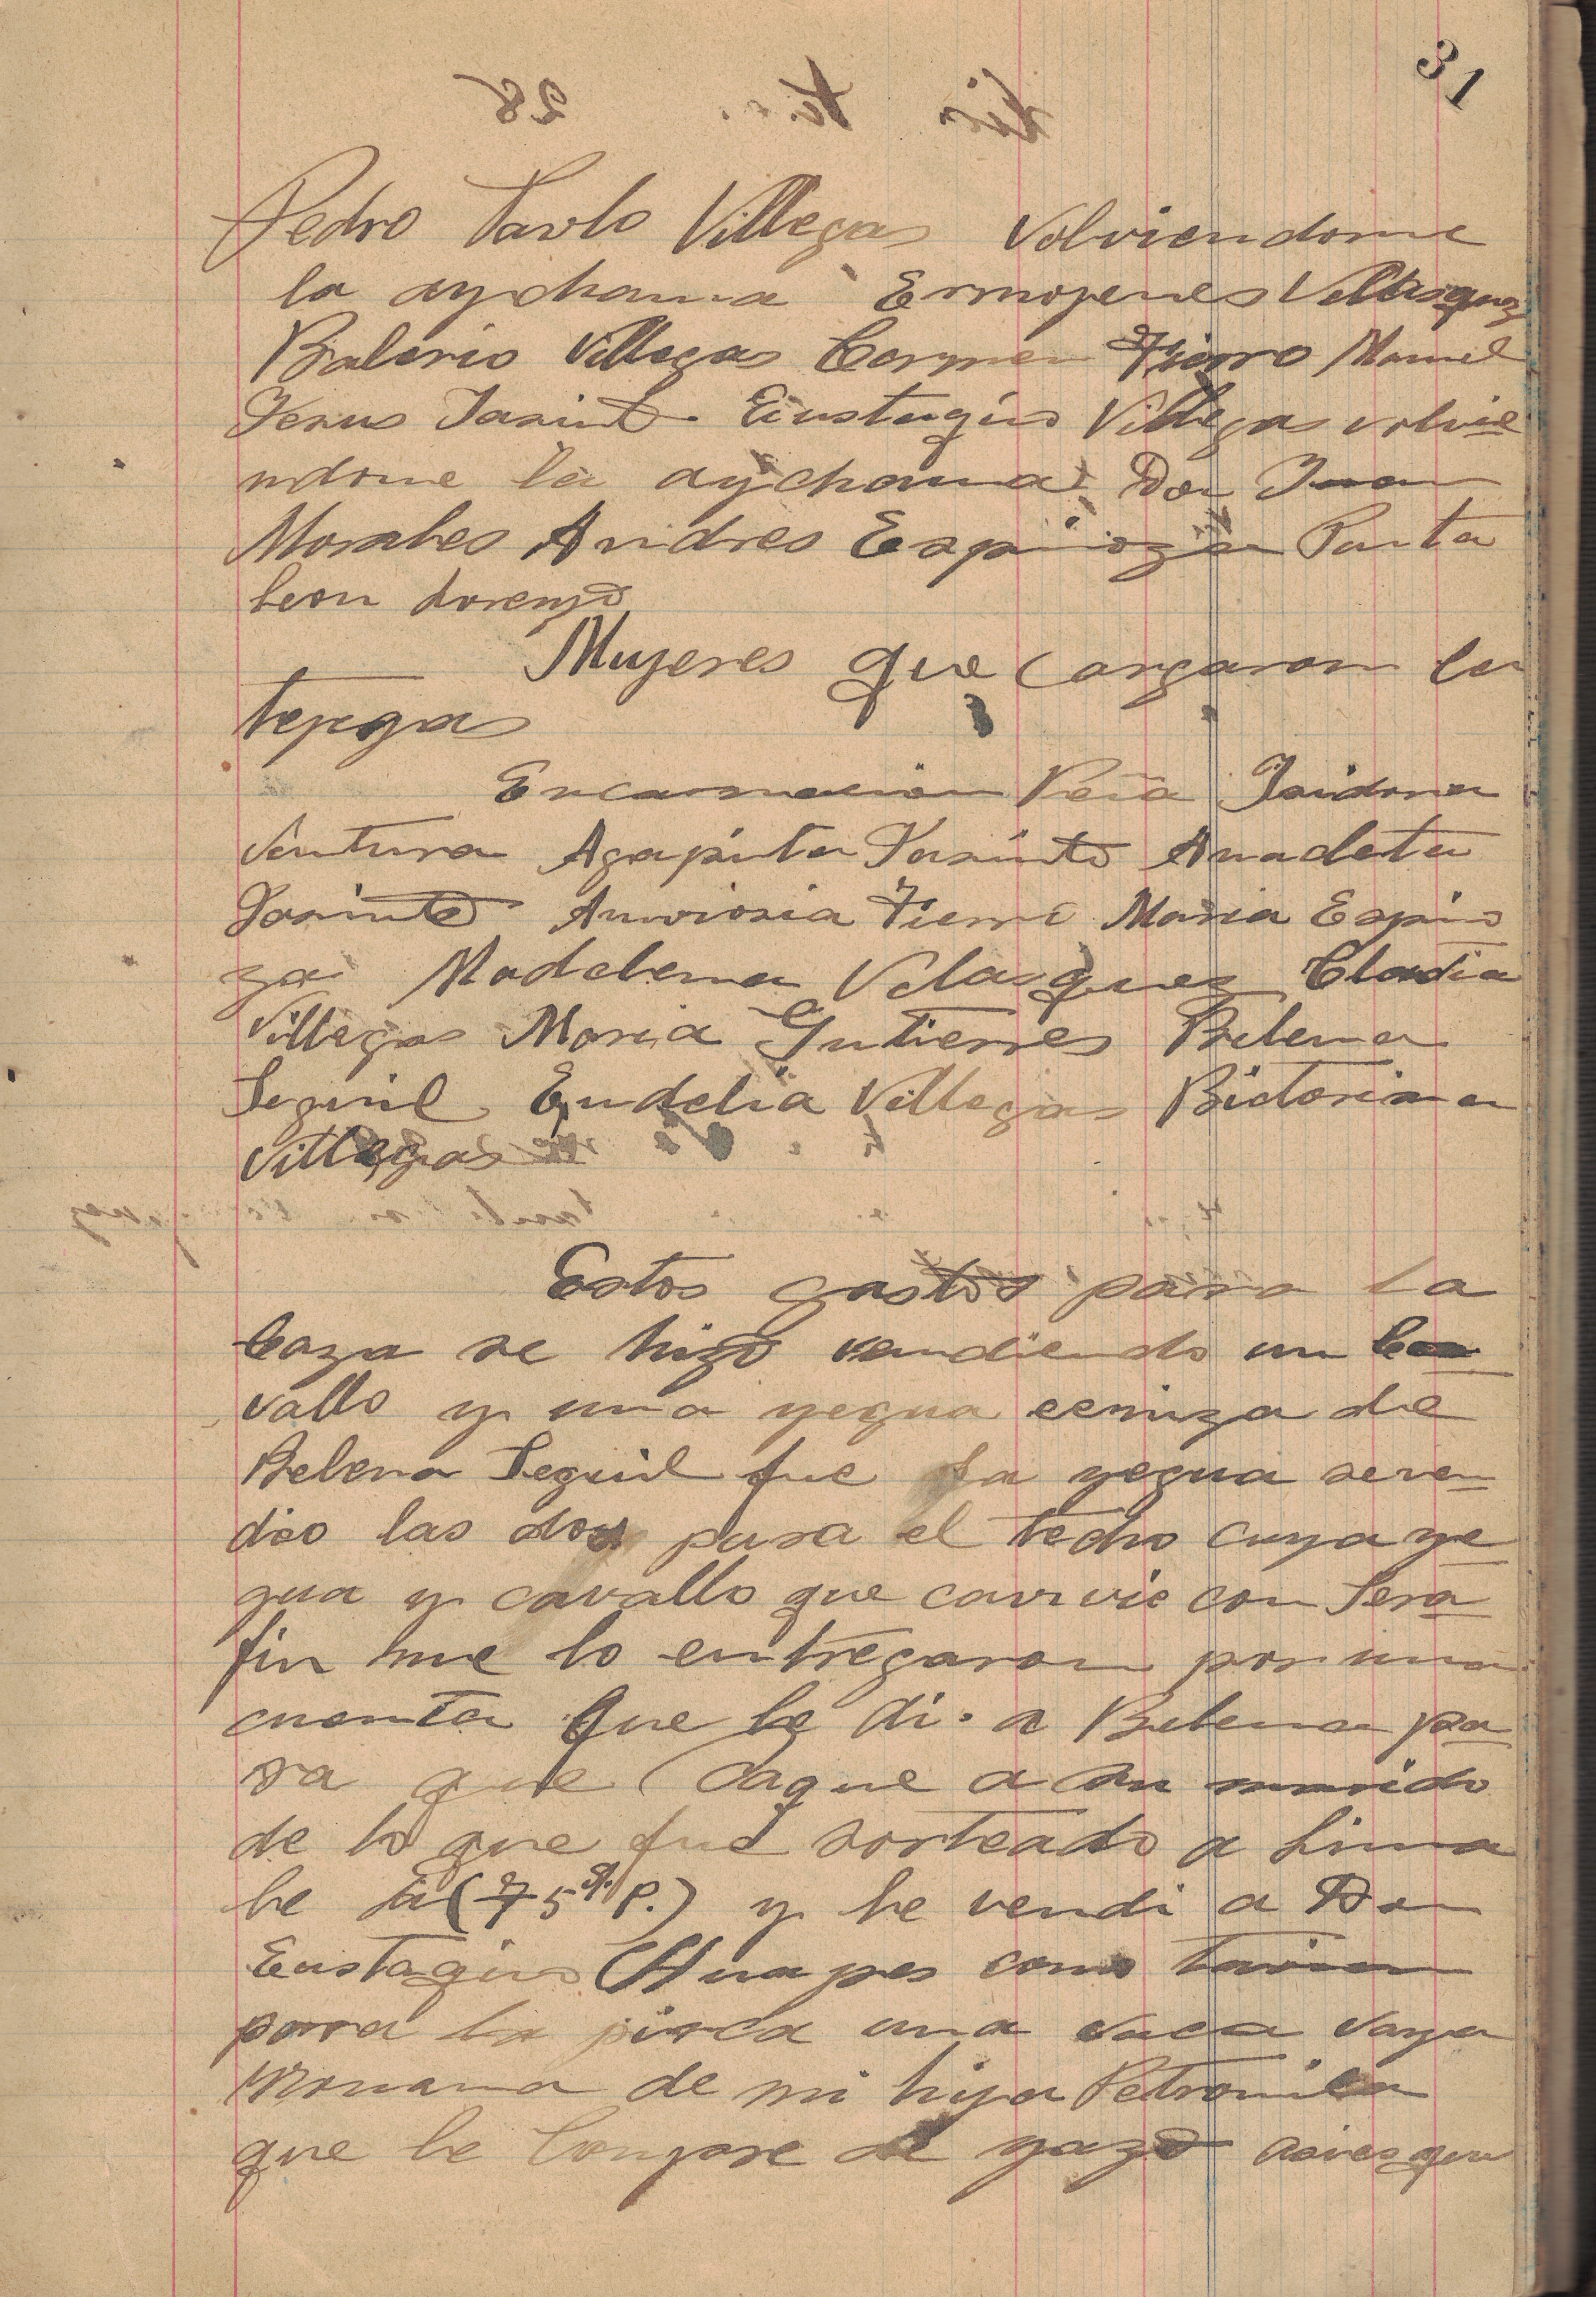 31
Pedro Pavlo Villegas volviendome
la aychama Ermojenes Velasquez
Balerio Villegas Carmen Fierro Manuel
Jesus Jasinto Eustaquio Villegas volvie
ndome la aychama Don Juan
Morales Andres Espinoza Panta
leon Lorenzo
Mujeres que cargaron la
tepsas
Encarnacion Peña Isidora
Ventura Agapita Jasinto Anacleta
Jasinto Anvrosia Fierro Maria Espino
za Madalena Velasquez Claudia
Villegas Maria Gutierres Belena
Seguil Eudelia Villegas Bictoriana
Villegas
Estos gastos para la
Caza se hizo vendiendo un Ca
vallo y una yegua ceniza de
Belena Seguil fue la yegua se ven
dio las dos para el techo cuya ye
gua y cavallo que canvie con Sera
fin me lo entregaron por una
cuenta que le di a Belena pa
ra que saque a su marido
de lo que fue sorteado a Lima
le di (75 S. P.) y le vendi a Don
Eustaquio Huapes como tavien
para la pirca una vaca vaya
Moruna de mi hija Petronila
que le compre de yazo asies que